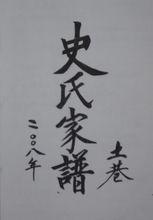 史氏家譜
土巷
二〇〇八年